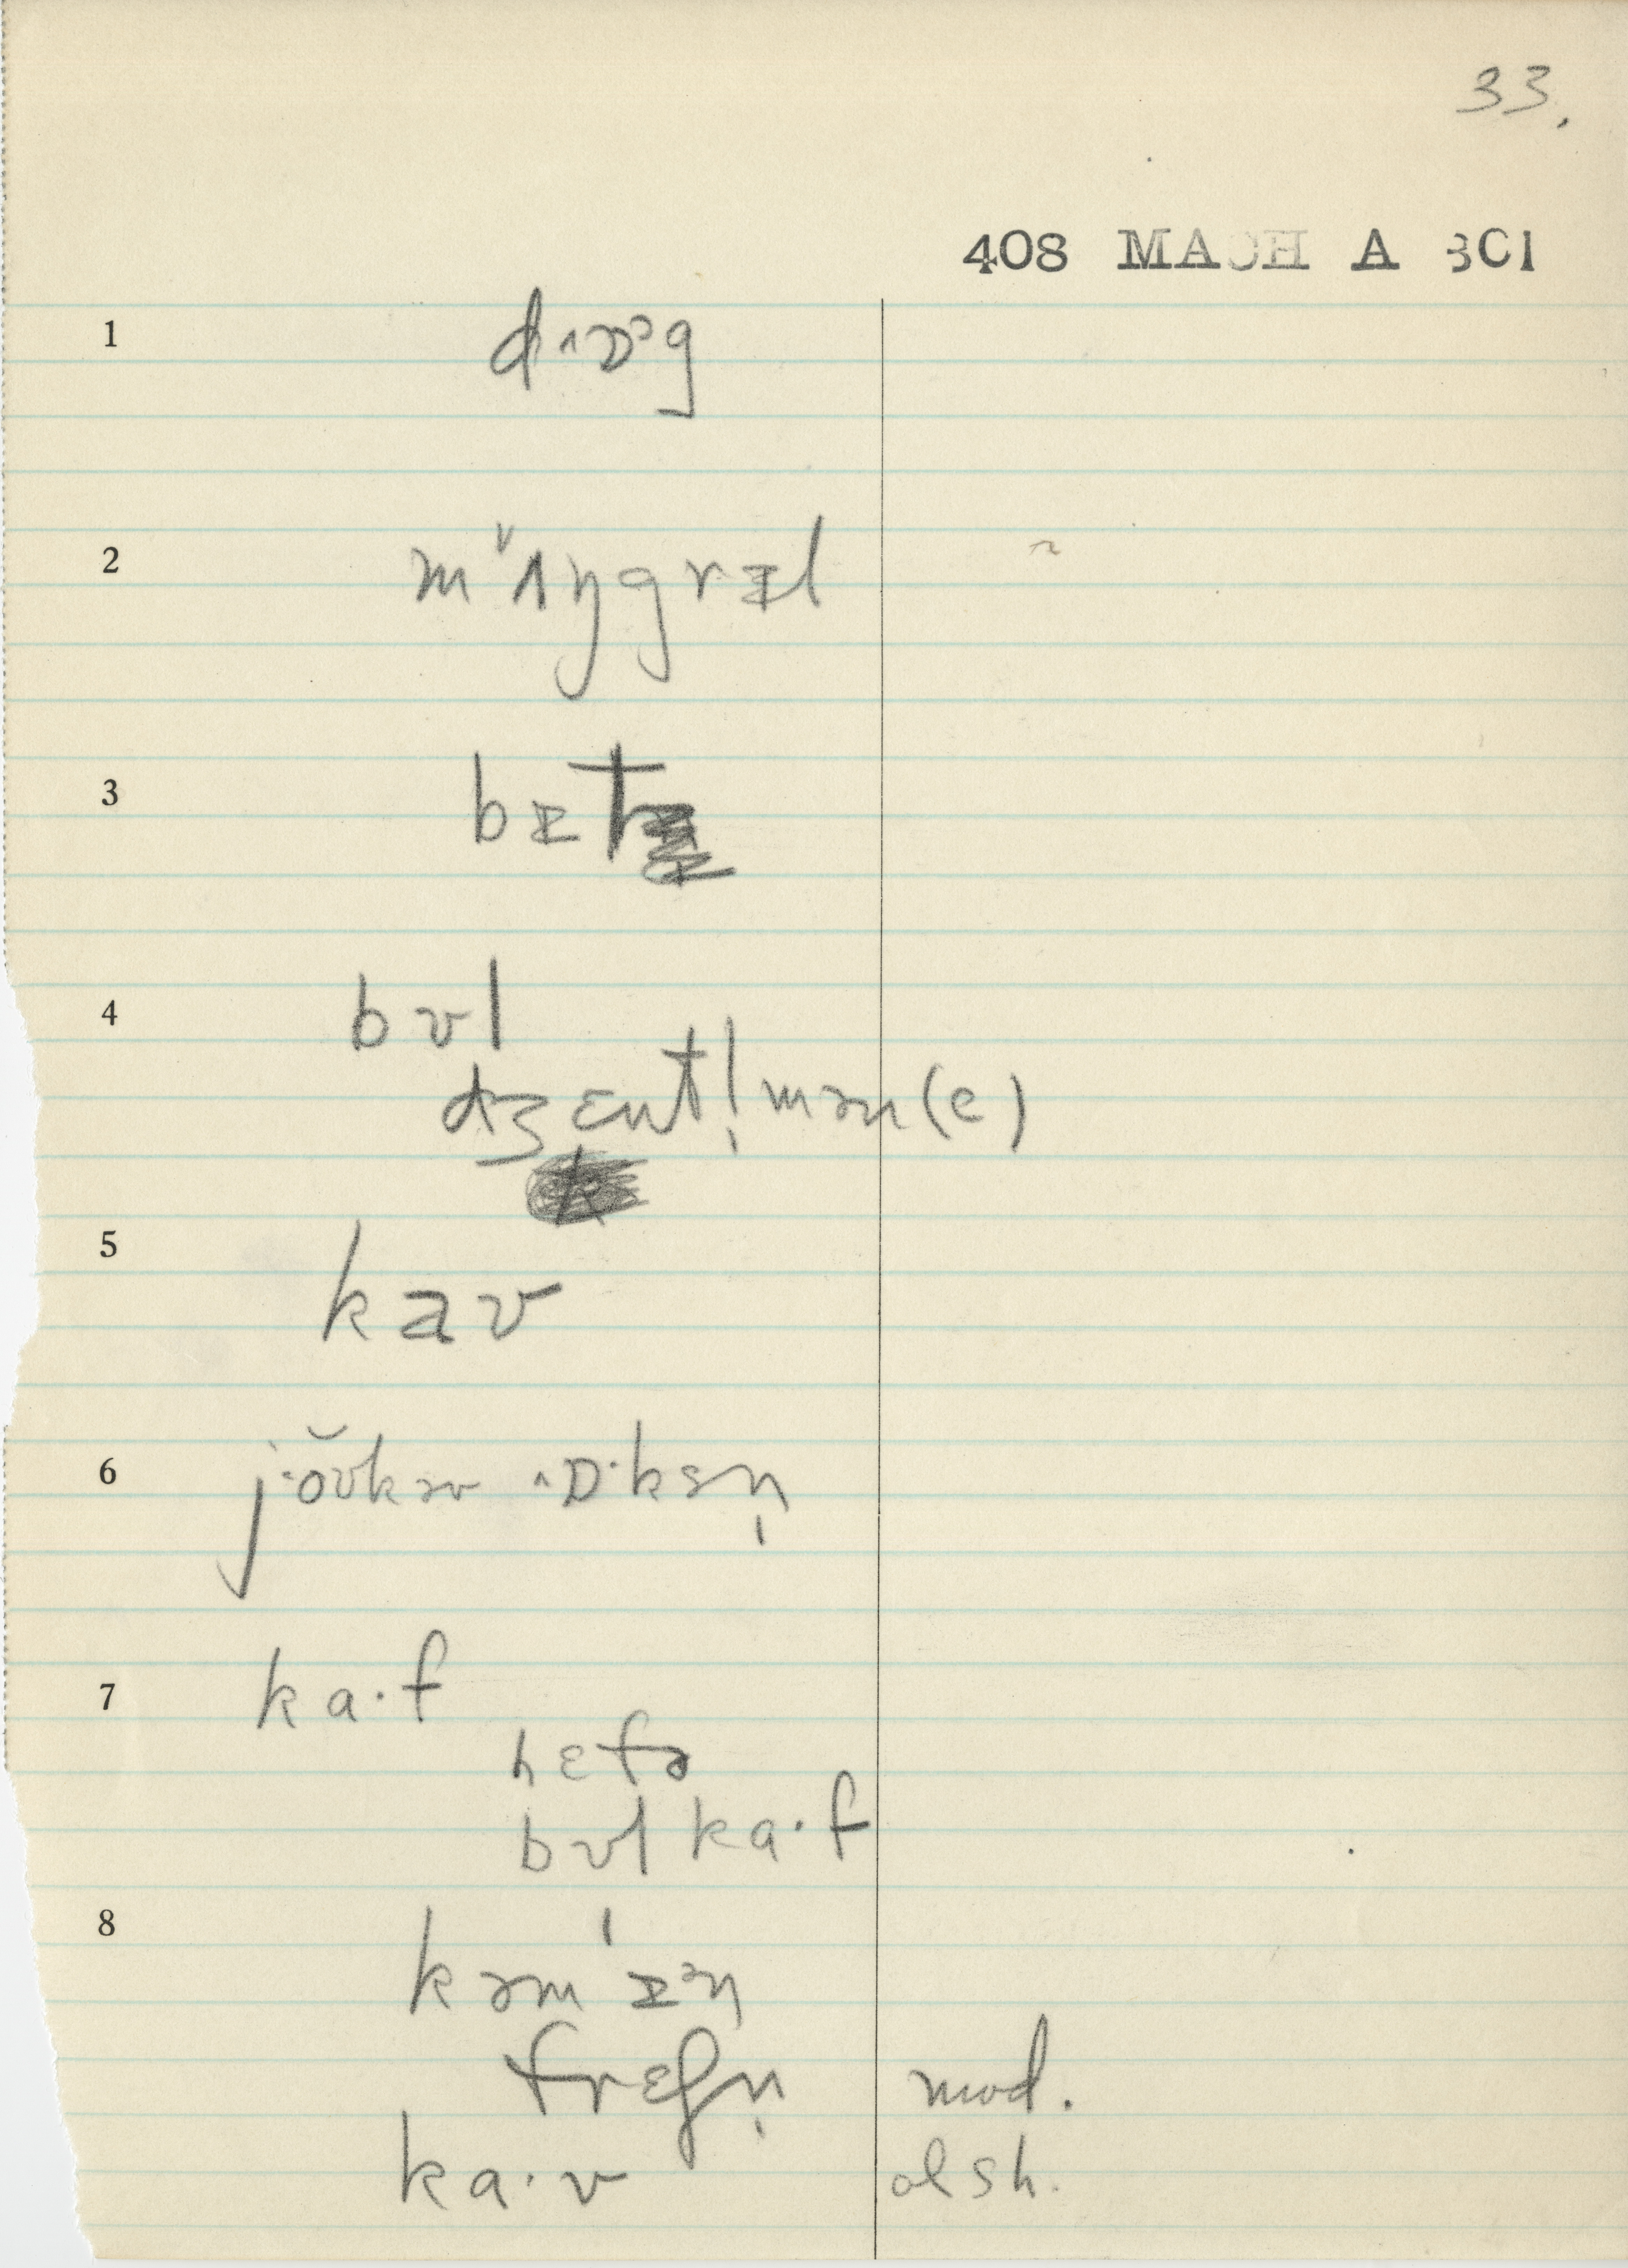 33.
408 MACH A 301
1 d‸ɒᵊg
2 m'ʌŋgrɪl
3 bɪt
4 bʊl
dʒɛntl̩mən(e)
5 kaʊ
6 j·ŏʊkəv ‸ɒ·ksn̩
7 ka·f
hɛfə
bʊl ka·f
8 kəm'ɪᵊn
frɛʃn̩ mod.
ka·v olsh.